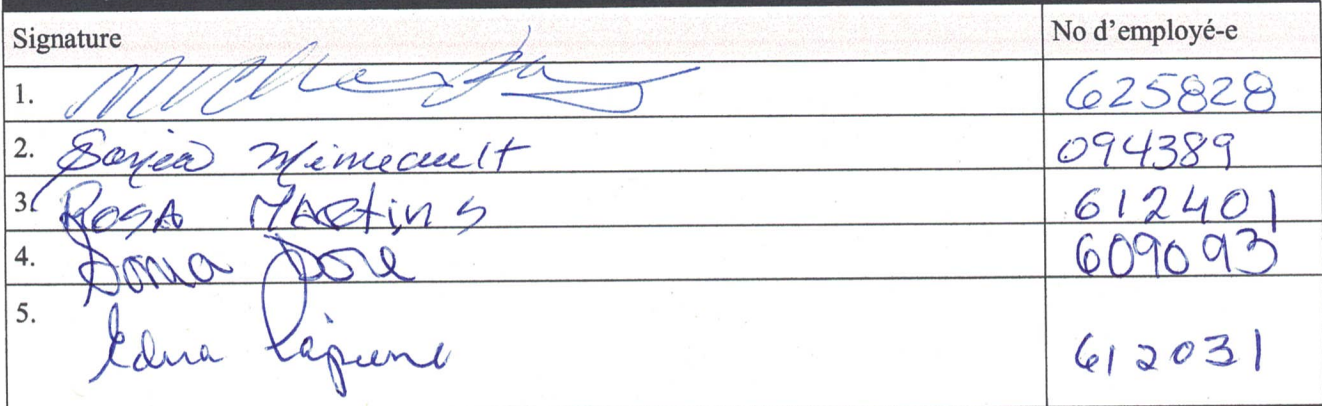 Signature No d'employé-e
1. 625828
2. Sonia Mimeault 094389
3. ROSA MARtins 612401
4. Sonia Dore 609093
5. Edna 612031